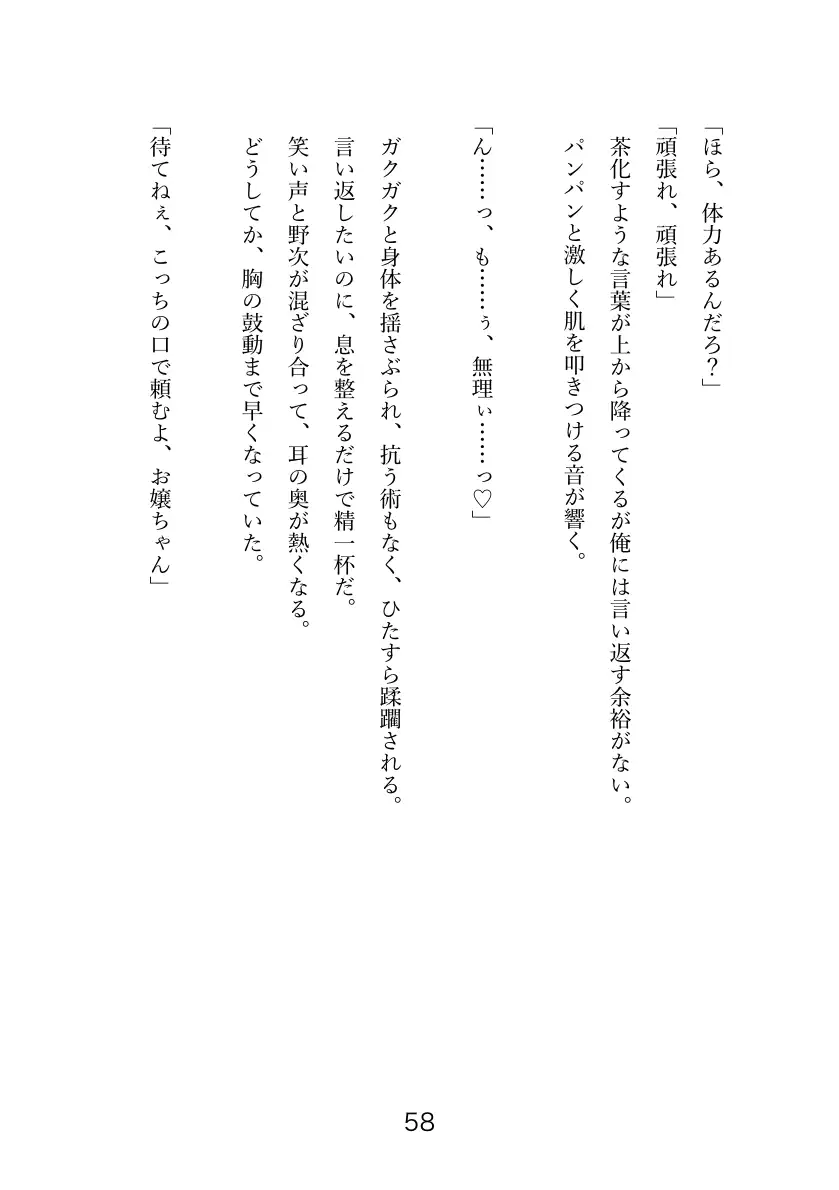 「ほら、体力あるんだろ？」
「頑張れ、頑張れ」
茶化すような言葉が上から降ってくるが俺には言い返す余裕がない。
パンパンと激しく肌を叩きつける音が響く。
「ん……っ、も……ぅ、無理ぃ……っ♡」
ガクガクと身体を揺さぶられ、抗う術もなく、ひたすら蹂躙される。
言い返したいのに、息を整えるだけで精一杯だ。
笑い声と野次が混ざり合って、耳の奥が熱くなる。
どうしてか、胸の鼓動まで早くなっていた。
「待てねぇ、こっちの口で頼むよ、お嬢ちゃん」
58